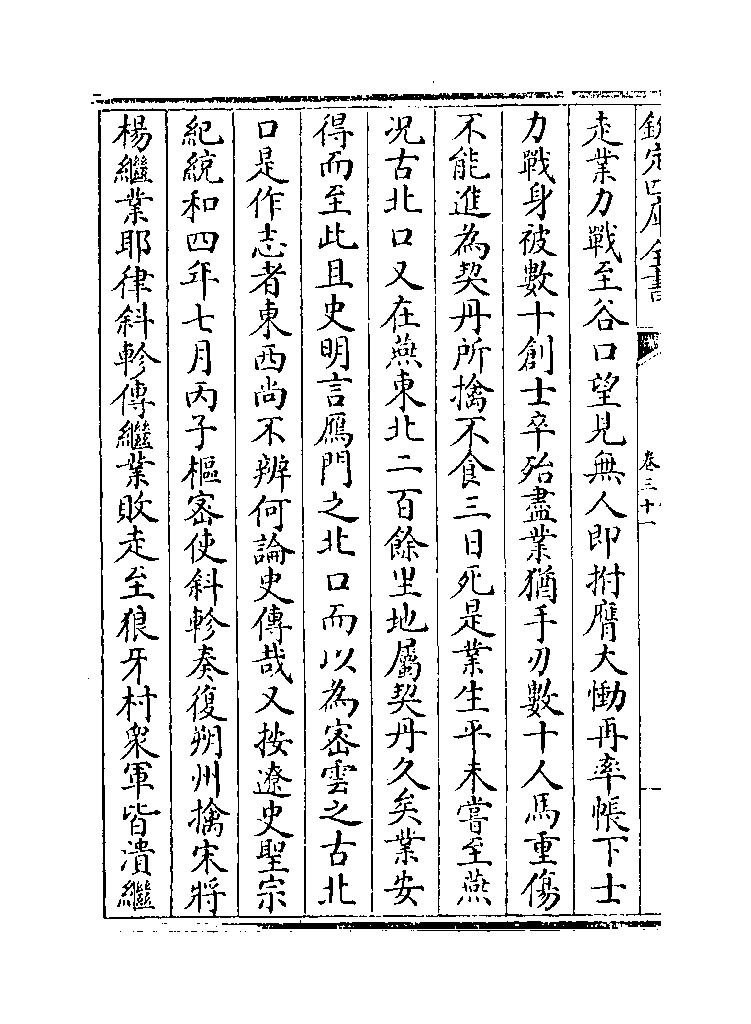 欽定四庫全書
卷三十一
走業力戰至谷口望見無人即拊膺大慟再率帳下士
力戰身被數十創士卒殆盡業猶手刃數十人馬重傷
不能進為契丹所擒不食三日死是業生平未嘗至燕
况古北口又在燕東北二百餘里地屬契丹久矣業安
得而至此且史明言雁門之北口而以為密雲之古北
口是作志者東西尚不辨何論史傳哉又按遼史聖宗
紀統和四年七月丙子樞密使斜軫奏復朔州擒宋將
楊繼業耶律斜軫傳繼業敗走至狼牙村衆軍皆潰繼